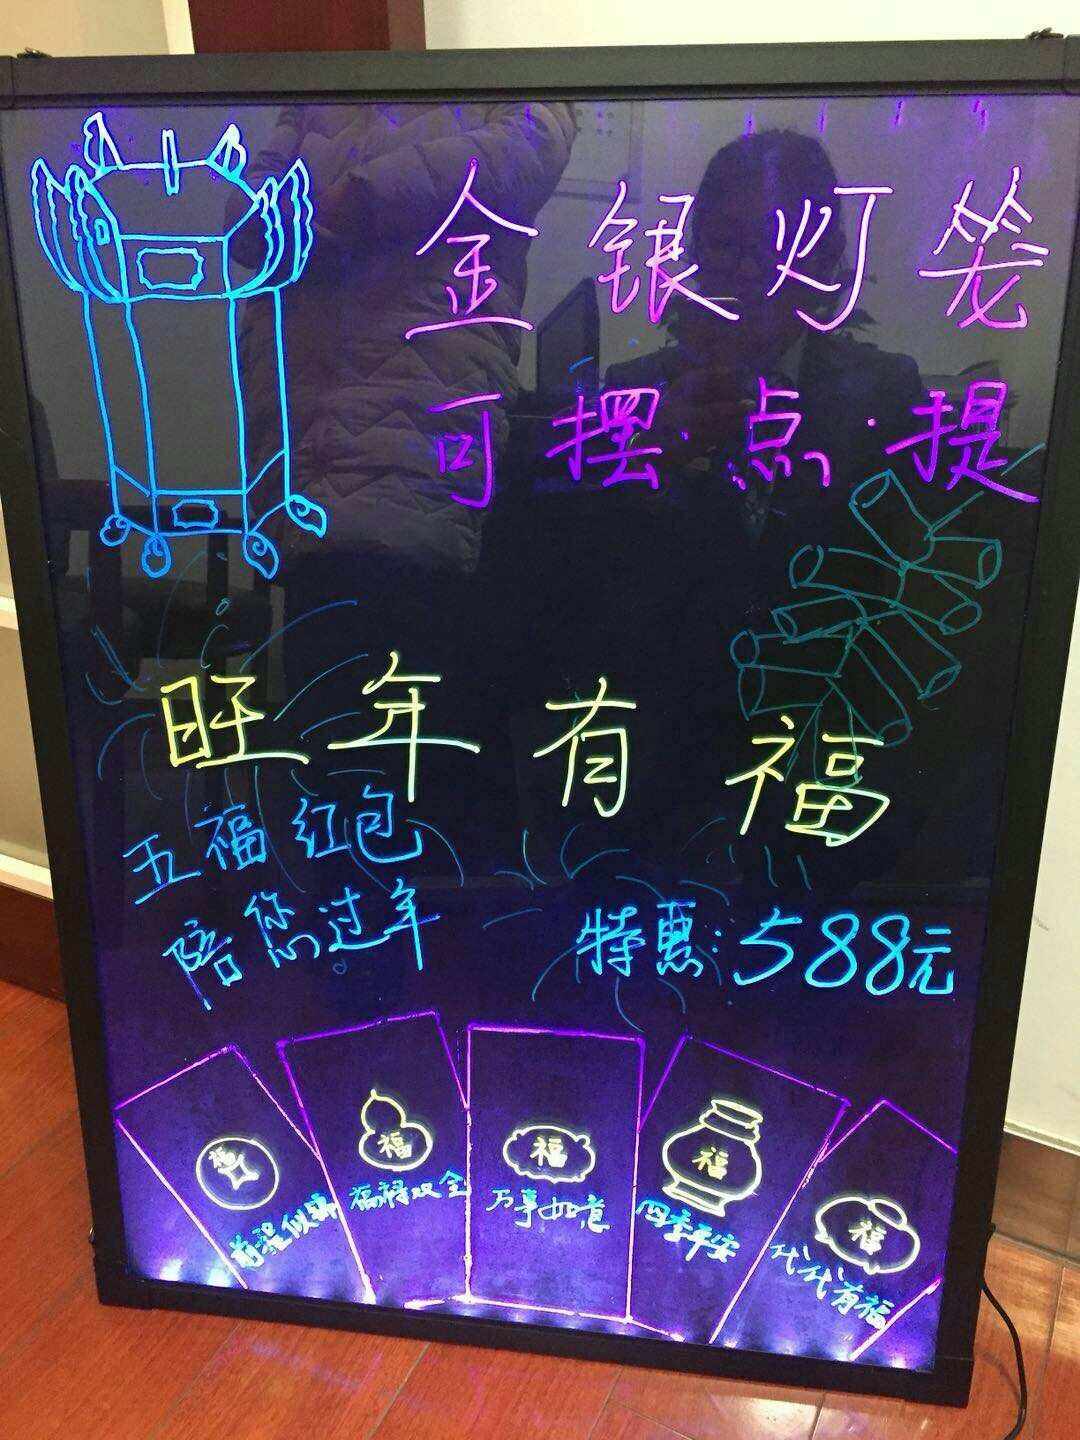 金银灯笼
可摆·点·提
旺年有福
五福红包
陪您过年
特惠:588元
福
福
福
福
福
前程似锦
福禄双全
万事如意
四季平安
代代有福